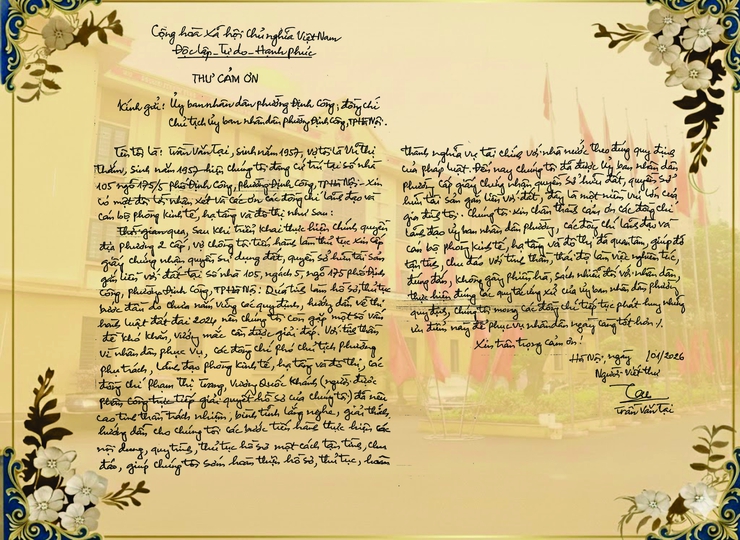 Cộng hoà Xã hội Chủ nghĩa Việt Nam
Độc lập - Tự do - Hạnh phúc
THƯ CẢM ƠN
Kính gửi: Ủy ban nhân dân phường Định Công; đồng chí
Chủ tịch Ủy ban nhân dân phường Định Công, TP Hà Nội.
Tên tôi là: Trần Văn Tại, sinh năm 1957, vợ tôi là Vũ Thị
Thắm, sinh năm 1957 hiện chúng tôi đang cư trú tại số nhà
105 ngõ 175/5 phố Định Công, phường Định Công, TP Hà Nội - Xin
có một đôi lời nhận xét và cảm ơn các đồng chí lãnh đạo và
cán bộ phòng Kinh tế, hạ tầng và đô thị như sau:
Thời gian qua, sau khi triển khai thực hiện chính quyền
địa phương 2 cấp, vợ chồng tôi tiến hành làm thủ tục xin cấp
giấy chứng nhận quyền sử dụng đất, quyền sở hữu tài sản
gắn liền với đất tại số nhà 105, ngách 5, ngõ 175 phố Định
Công, phường Định Công, TP Hà Nội. Quá trình làm hồ sơ, thủ tục
bước đầu do chưa nắm vững các quy định, hướng dẫn về thi
hành luật đất đai 2024 nên chúng tôi còn gặp một số vấn
đề khó khăn, vướng mắc cần được giải đáp. Với tinh thần
vì nhân dân phục vụ, các đồng chí Phó chủ tịch phường
phụ trách, lãnh đạo phòng kinh tế, hạ tầng và đô thị, các
đồng chí Phạm Thị Trang, Vương Quốc Khánh (người được
phân công trực tiếp giải quyết hồ sơ của chúng tôi) đã nêu
cao tinh thần trách nhiệm, bình tĩnh lắng nghe, giải thích,
hướng dẫn cho chúng tôi các bước tiến hành thực hiện các
nội dung, quy trình, thủ tục hồ sơ một cách tận tình, chu
đáo, giúp chúng tôi sớm hoàn thiện hồ sơ, thủ tục, hoàn
thành nghĩa vụ tài chính với nhà nước theo đúng quy định
của pháp luật. Đến nay chúng tôi đã được Ủy ban nhân dân
Phường cấp giấy chứng nhận quyền sở hữu đất, quyền sở
hữu tài sản gắn liền với đất, đây là một niềm vui lớn của
gia đình tôi. Chúng tôi xin chân thành cảm ơn các đồng chí
lãnh đạo ủy ban nhân dân phường, các đồng chí lãnh đạo và
cán bộ phòng Kinh tế, hạ tầng và đô thị đã quan tâm, giúp đỡ
tận tình, chu đáo với tinh thần, thái độ làm việc nghiêm túc,
đúng đắn, không gây phiền hà, sách nhiễu đối với nhân dân,
thực hiện đúng các quy tắc ứng xử của ủy ban nhân dân phường
quy định, chúng tôi mong các đồng chí tiếp tục phát huy những
ưu điểm này để phục vụ nhân dân ngày càng tốt hơn ./.
Xin trân trọng cảm ơn!
Hà Nội, ngày /01/2026
Người viết thư
Trần Văn Tại